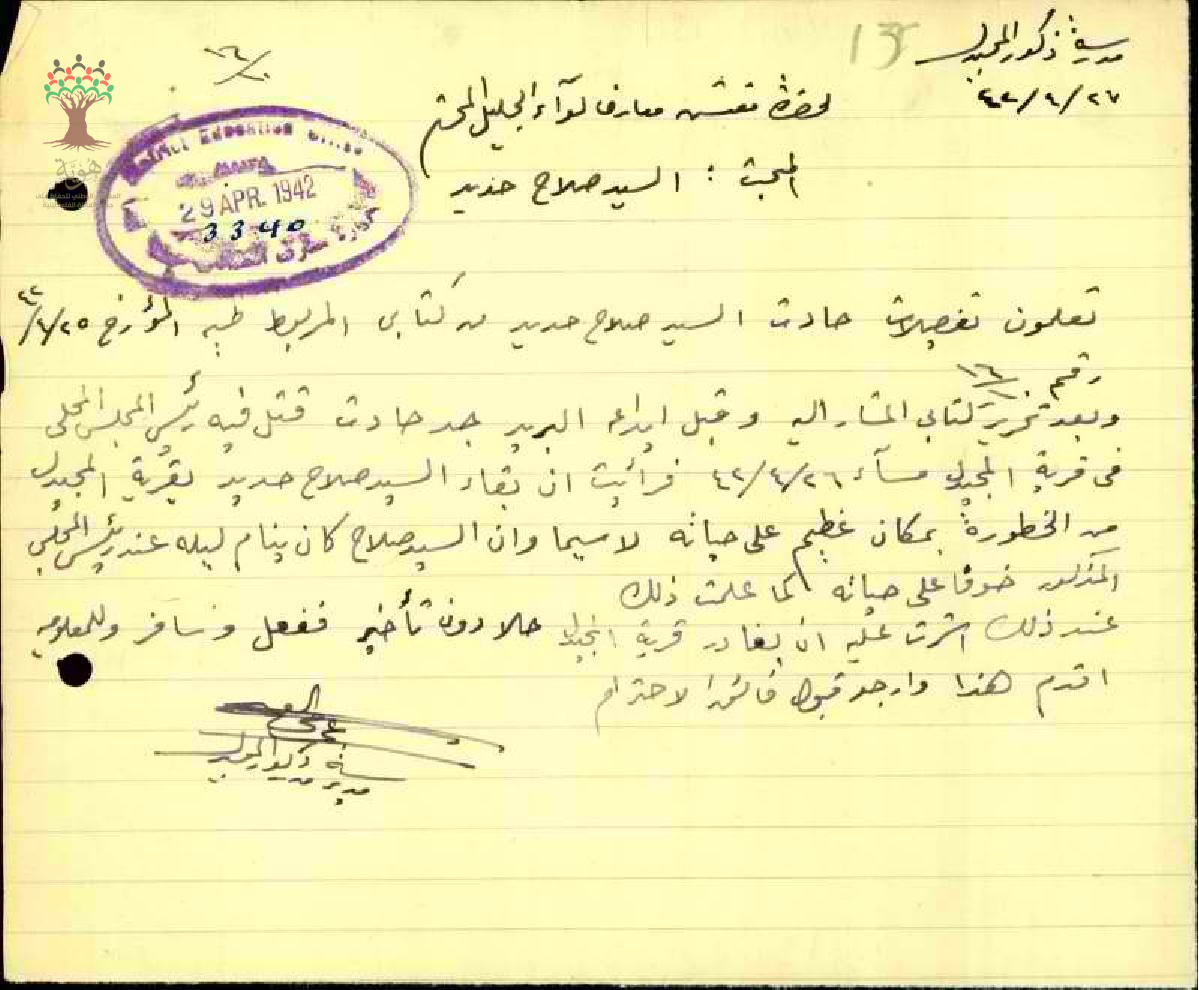 مدرسة ذكور المجيدل
13
٤٢/٤/٢٧
١٦/١٠
لحضرة مفتش معارف لوآء الجليل المحترم
المبحث : السيد صلاح حديد
District Education Office
HAIFA
29 APR. 1942
3340
هوية
تعلمون تفصيلات حادث السيد صلاح حديد من كتابي المربوط طيه المؤرخ ٤٢/٤/٢٥
رقم ١٦/١٠
وبعد تحرير كتابي المشار اليه وقبل ايداعه البريد جد حادث قتل فيه رئيس المجلس المحلي
في قرية المجيدل مسآء ٤٢/٤/٢٦ فرأيت ان بقاء السيد صلاح حديد بقرية المجيدل
من الخطورة بمكان عظيم على حياته لا سيما وان السيد صلاح كان ينام ليله عند رئيس المحلي
المذكور خوفا على حياته كما علمت ذلك
عند ذلك اشرت عليه ان يغادر قرية المجيدل حالا دون تأخير ففعل وسافر وللمعلومية
اقدم هذا وارجو قبول فائق الاحترام
مدير مدرسة ذكور المجيدل